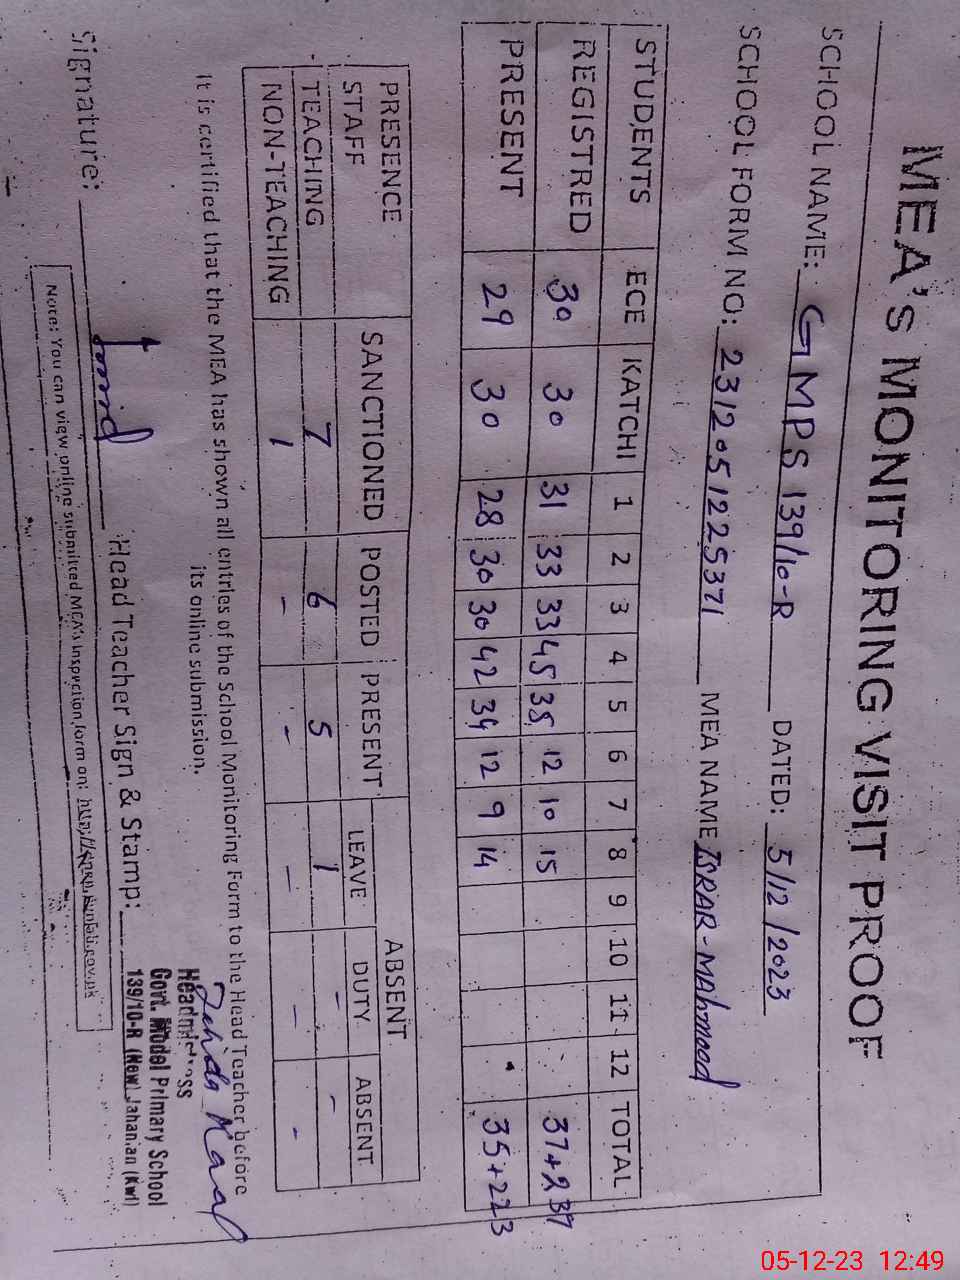 MEA's MONITORING VISIT PROOF
SCHOOL NAME: GMPS 139/10-R DATED: 5/12/2023
SCHOOL FORM NO: 2312051225371 MEA NAME ISRAR-MAHMOOD
STUDENTS ECE KATCHI 1 2 3 4 5 6 7 8 9 10 11 12 TOTAL
REGISTRED 30 30 31 33 33 45 35 12 10 15 37+237
PRESENT 29 30 28 30 30 42 34 12 9 14 35+223
PRESENCE STAFF SANCTIONED POSTED PRESENT ABSENT
LEAVE DUTY ABSENT
TEACHING 7 6 5 1 - -
NON-TEACHING 1 - - - - -
It is certified that the MEA has shown all entries of the School Monitoring Form to the Head Teacher before
its online submission.
Headmistress
Govt. Model Primary School
139/10-R (New) Jahanian (Kwl)
Signature: Head Teacher Sign & Stamp:
Note: You can view online submitted MEA's Inspection form on:
05-12-23 12:49